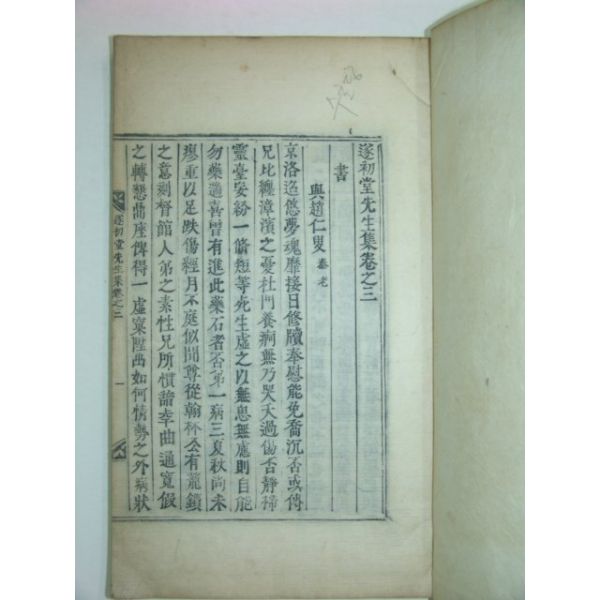 遂初堂先生集卷之三
書
與趙仁叟 泰老
京洛迢悠夢魂靡接日修牘奉慰能免喬沉否或傳
兄比纏漳濱之憂杜門養痾無乃哭天過傷否靜禘
靈臺安紛一脩短等死生虛之以無息無慮則自能
勿藥邇喜曾有進此藥石者否弟一病三夏秋尚未
瘳重以足趺傷經月不庭似聞尊從翰林公有龍鎖
之意刻督館人弟之素性兄所慣諳幸曲通寬假
之轉懇鼎座俾得一虛窠陞出如何情勢之外病狀
遂初堂先生集卷之三 一